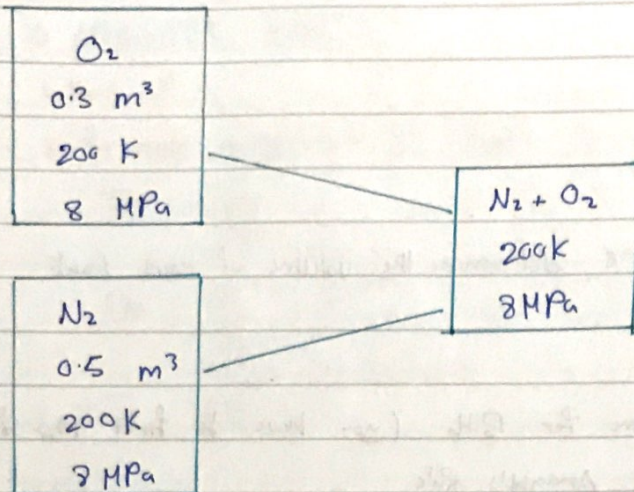 O₂
0.3 m³
200 K
8 MPa
N₂ + O₂
200K
8MPa
N₂
0.5 m³
200K
8 MPa